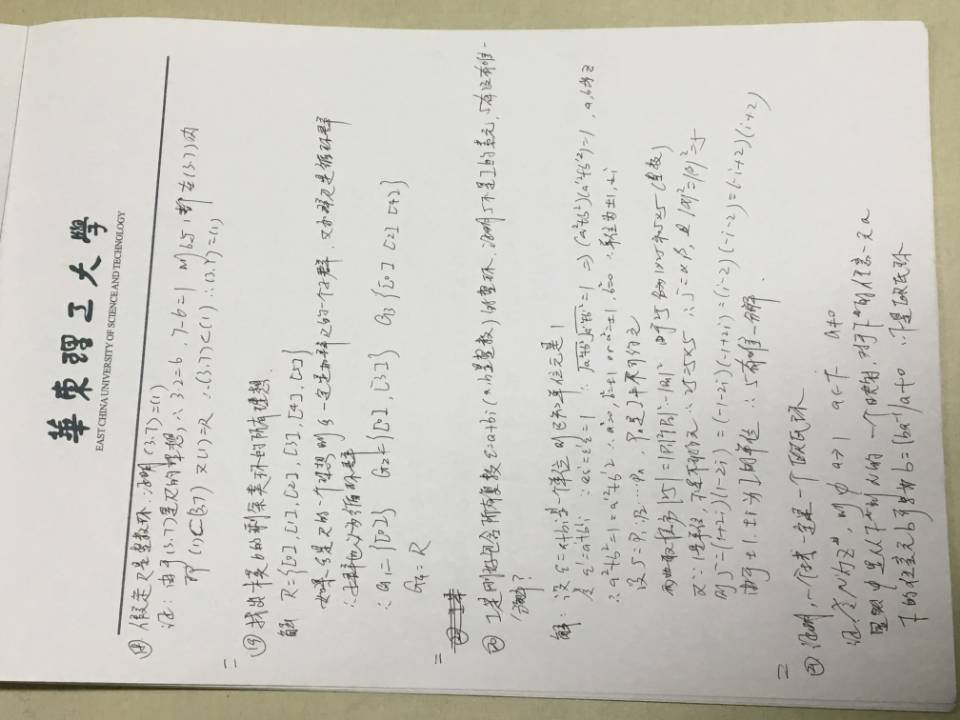 華東理工大學
EAST CHINA UNIVERSITY OF SCIENCE AND TECHNOLOGY
⑱ 假定R是整数环.证明(3.7)=(1)
证：由于(3.7)是R的理想,∴3·2=6，7-6=1 则6与1都在(3.7)内
即(1)⊂(3,7) 又(1)=R ∴(3.7)⊂(1) ∴(3.7)=(1)
=
⑲ 找出模6的剩余类环的所有理想.
解 R={[0],[1],[2],[3],[4],[5]}
如果G是R的一个理想则G一定是加群R的一个子群.又加群R是循环群
∴子群也必为循环群
∴G1={[0]} G2={[0],[3]} G3{[0] [2] [4]}
G4=R
=
⑳ I是刚好包含所有复数ε=a+bi(a,b是整数)的整环.证明5不是I的素元,5有没有唯一
分解?
解：设ε=a+bi是一个单位 则 单位元是1
ε'=a'+b'i ∵εε'=ε'ε=1 ∴ √a²+b² √a'²+b'²=1 ⇒(a²+b²)(a'²+b'²)=1,a,b为Z
∴a²+b²=1=a'²+b'² ∴a²=0,b²=±1 or a²=±1,b²=0 ∴单位为±1,±i
设5=P₁P₂…Pn，Pn是I中不可约元
两边取模方|25|=|P₁|²|P₂|²…|Pn|² 由于25分为1×25和5×5(整数)
又∵1是单位,不是不可约元 ∴25=5×5 ∴5=αβ,且|α|²=|β|²=5
则5=(1+2i)(1-2i)=(-1-2i)(-1+2i)=(i-2)(-i-2)=(-i+2)(i+2)
由于±1.±i为I的单位 ∴5有唯一分解.
=
㉑ 证明,一个域一定是一个欧氏环
证. 则φ a→1 a∈F a≠0
显然φ是从F*到N的一个映射.对于F*的任意一元a
F的任意元b可 b=(ba⁻¹)a+0 ∴F是欧氏环